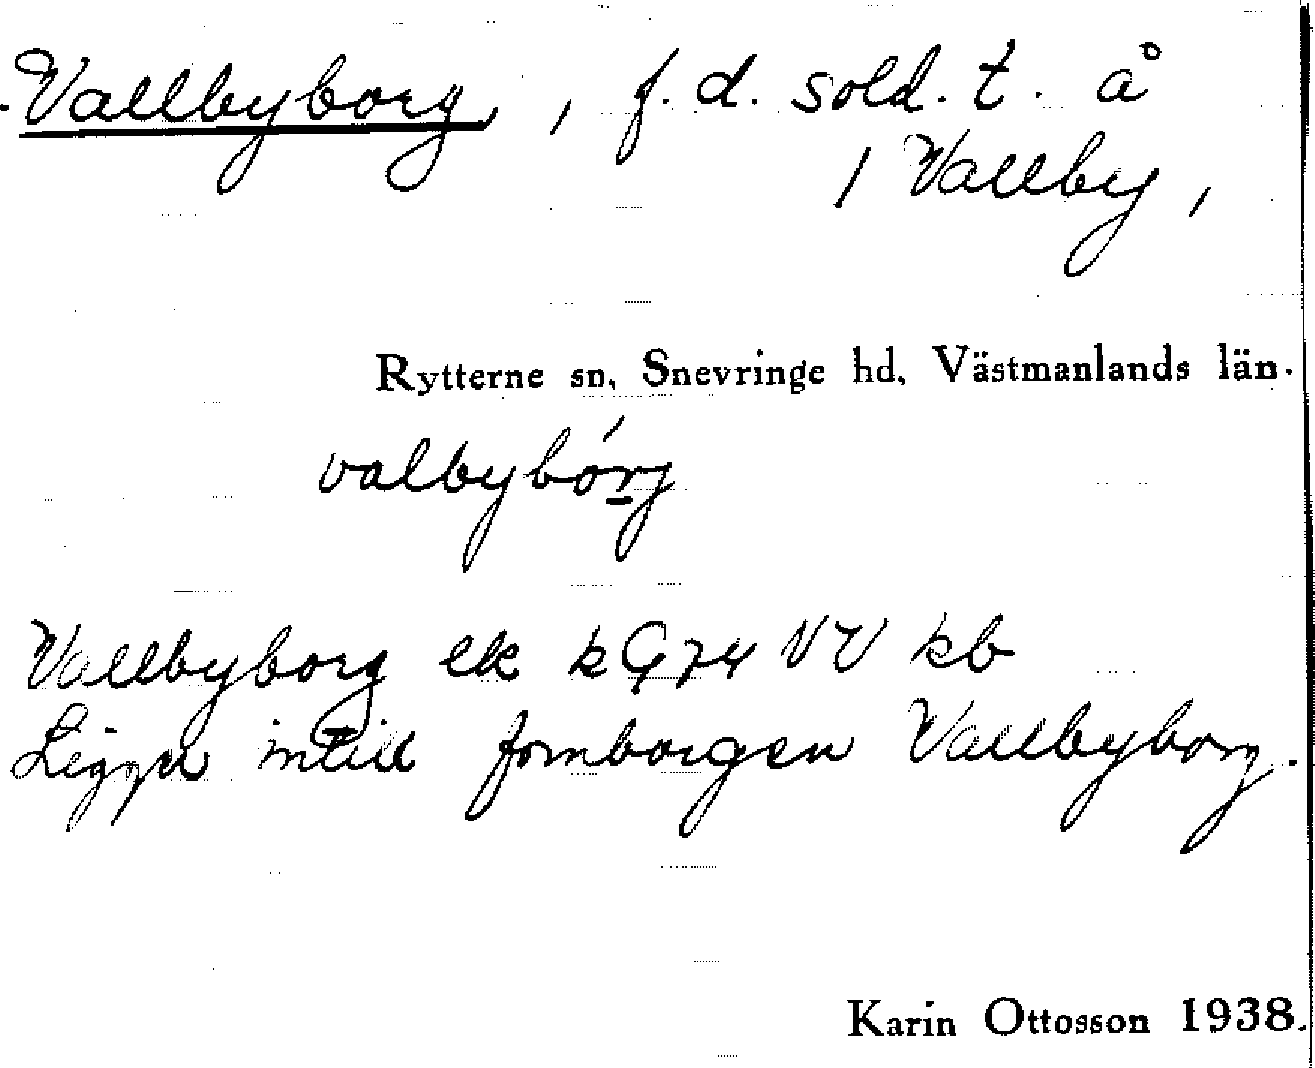 Vallbyborg, f. d. sold. t. å
/ Vallby,
Rytterne sn, Snevringe hd, Västmanlands län.
valbybórj
Vallbyborg ek k G74 VV kb
Ligger intill fornborgen Vallbyborg.
Karin Ottosson 1938.